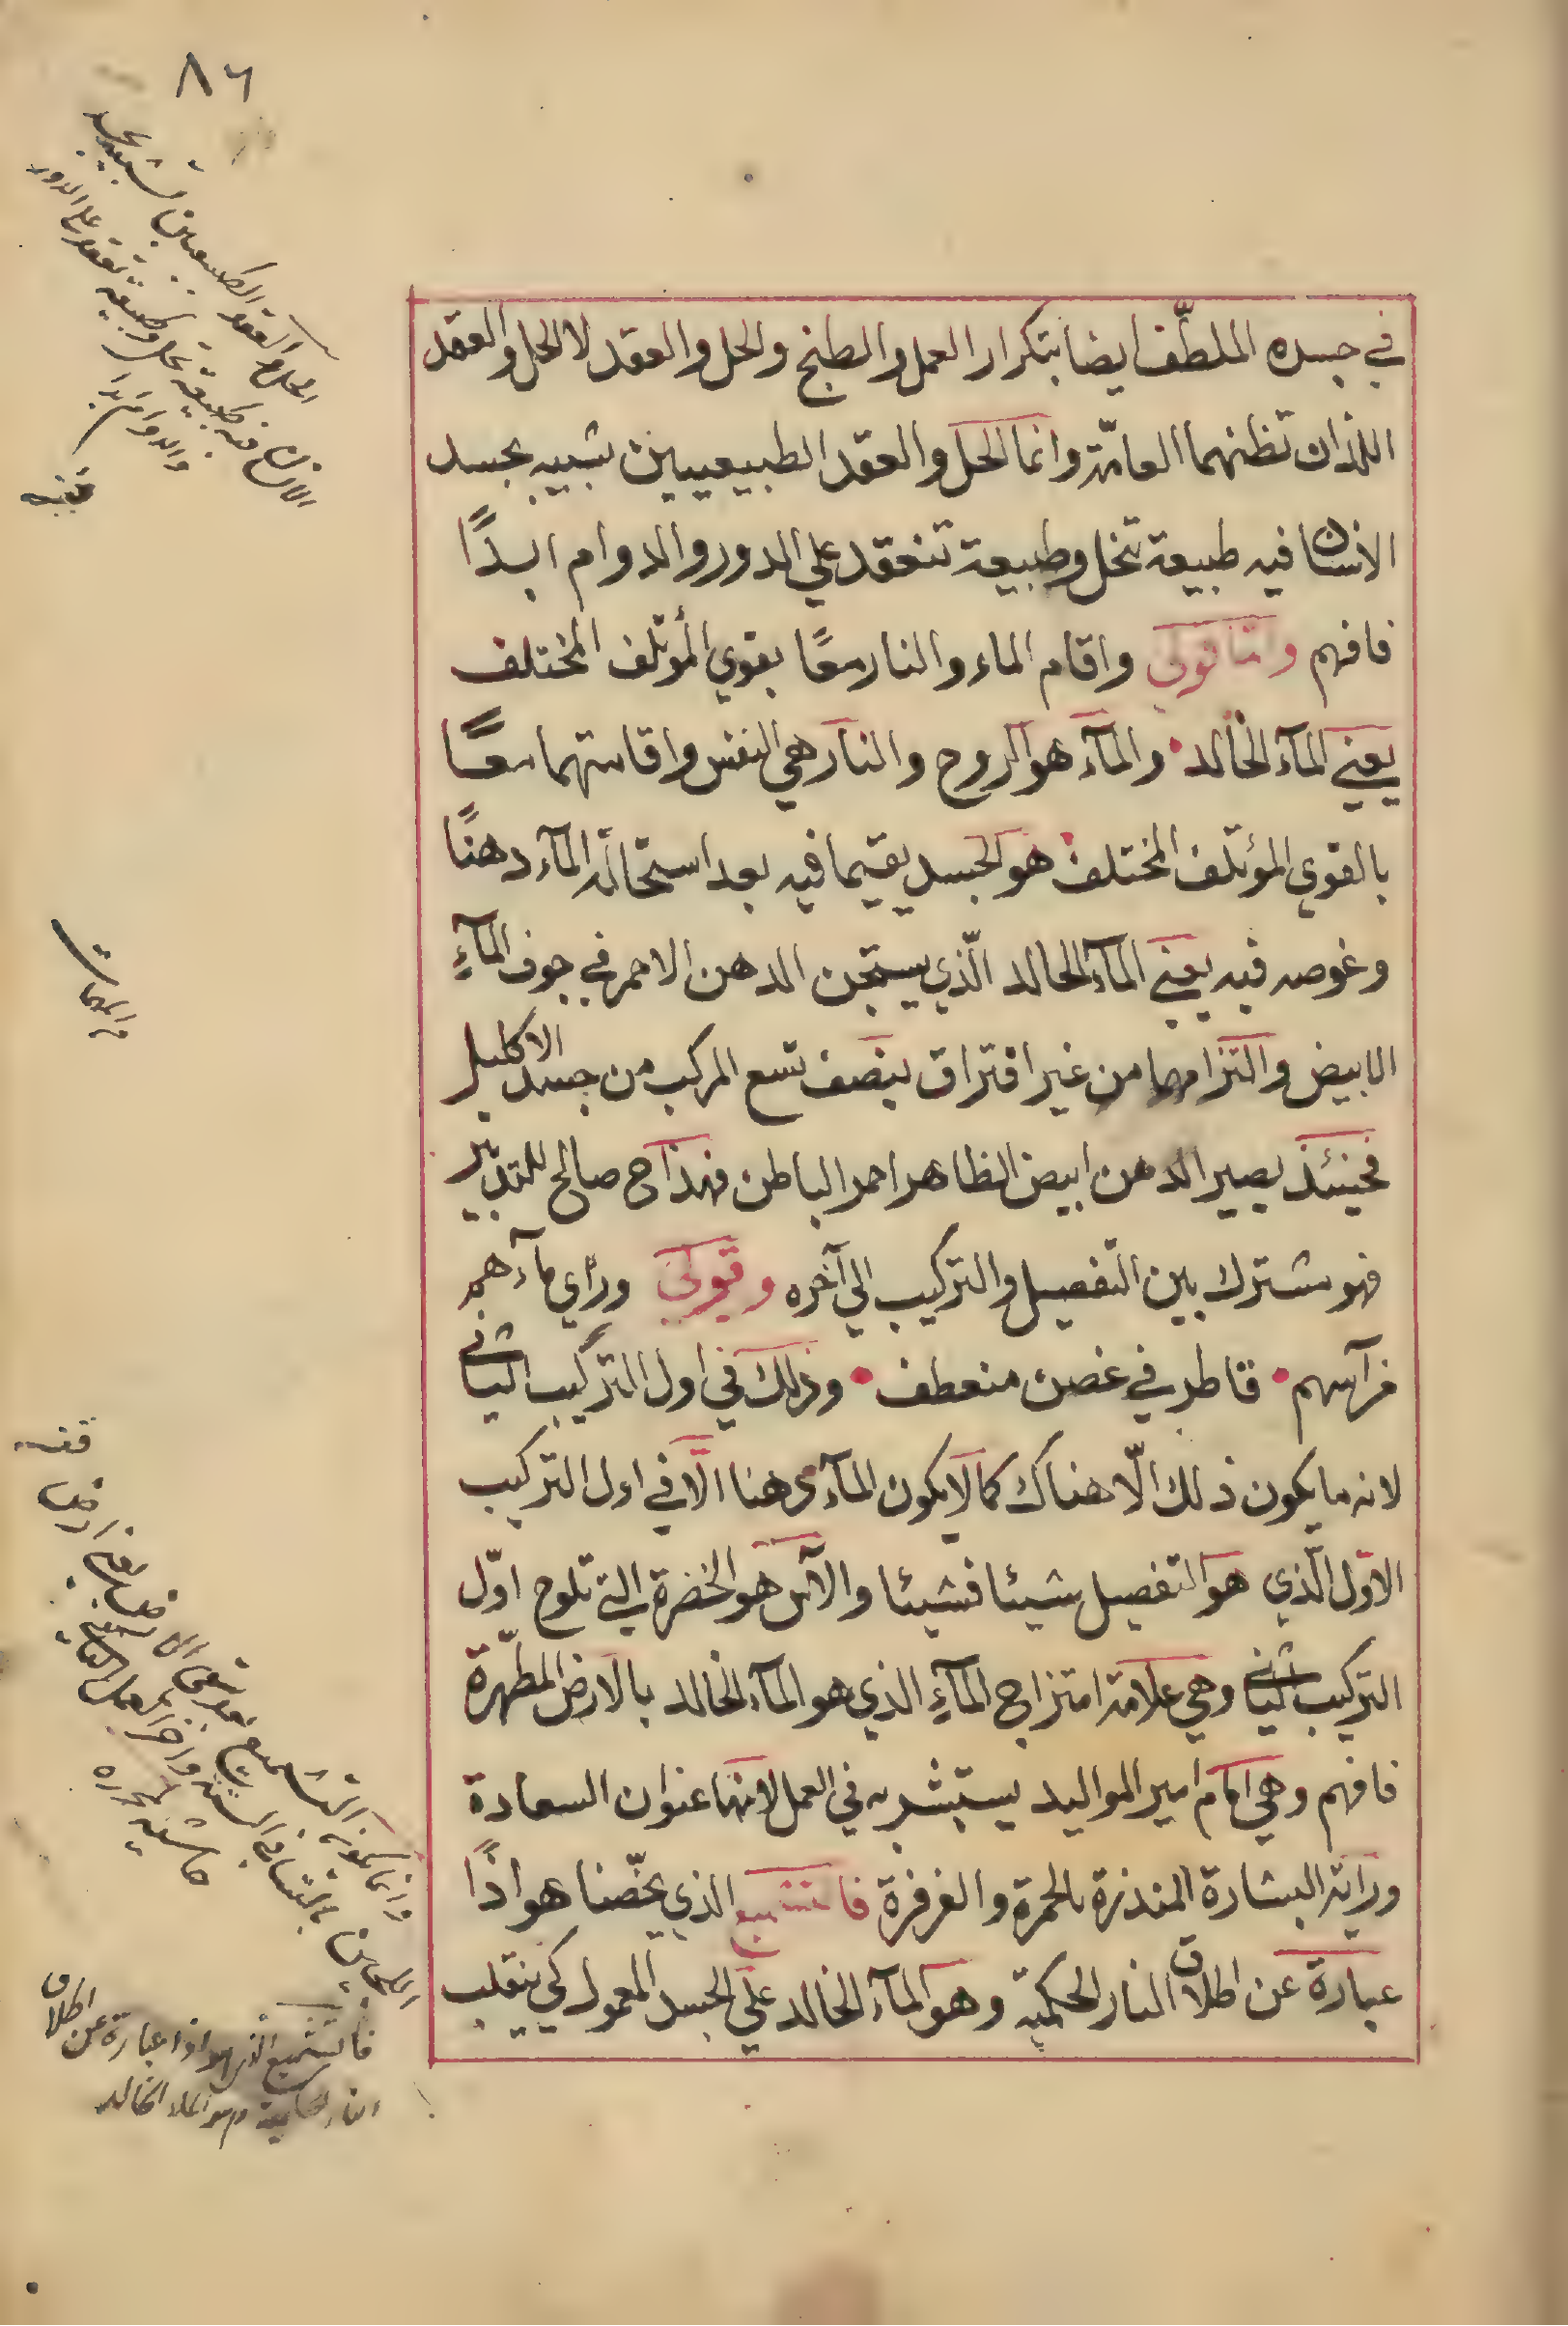 ٨٦
في جسده الملطّف ايضا بتكرار العمل والطبخ والحل والعقد لا الحل والعقد
اللذان تظنهما العامّة وانما الحل والعقد الطبيعيين شبيه بجسد
الانسان فيه طبيعة تنحل وطبيعة تنعقد علي الدور والدوام ابدًا
فافهم وامّا قولي واقام الماء والنار معًا بقوي المؤتلف المختلف
يعني المآء الخالد والمآء هو الروح والنار هي النفس واقامتهما معًا
بالقوي المؤتلف المختلف هو الجسد يقيما فيه بعد استحالة المآء دهنًا
وغوصه فيه يعني المآء الخالد الّذي يستجن الدهن الاحمر في جوف المآءِ
الابيض والتزامهما من غير افتراق بنصف تسع المركب من جسد الاكليل
فحينئذ يصير الدهن ابيض الظاهر احمر الباطن فهذا ح صالح للتدبير
فهو مشترك بين التفصيل والتركيب الي آخره وقولي ورأي مآءهم
من آسهم قاطر في غصن منعطف وذلك في اول التركيب الثاني
لانه ما يكون ذلك الّا هناك كما لا يكون المآء هنا الّا في اول التركيب
الاوّل الّذي هو التفصيل شيئا فشيئا والآس هو الخضرة التي تلوح اوّل
التركيب الثاني وهي علامة امتزاج المآءِ الذي هو المآء الخالد بالارض المطهّرة
فافهم وهي امام امير المواليد يستبشر به في العمل لانها عنوان السعادة
وراية البشارة المنذرة بالحمرة والفرفرة فالتشميع الذي يخصّنا هو اذًا
عبارة عن اطلاق النار الحكمية وهو المآء الخالد علي الجسد المعمول كي ينقلب
الحل والعقد الطبيعيين تشبيه بجسد
الانسان فيه طبيعة تحل وطبيعة تنعقد علي الدور
والدوام ابدا
وانما يكون التشميع
حاشية
فالتشميع الذي هو اذا عبارة عن اطلاق
النار الحكمية وهو الماء الخالد